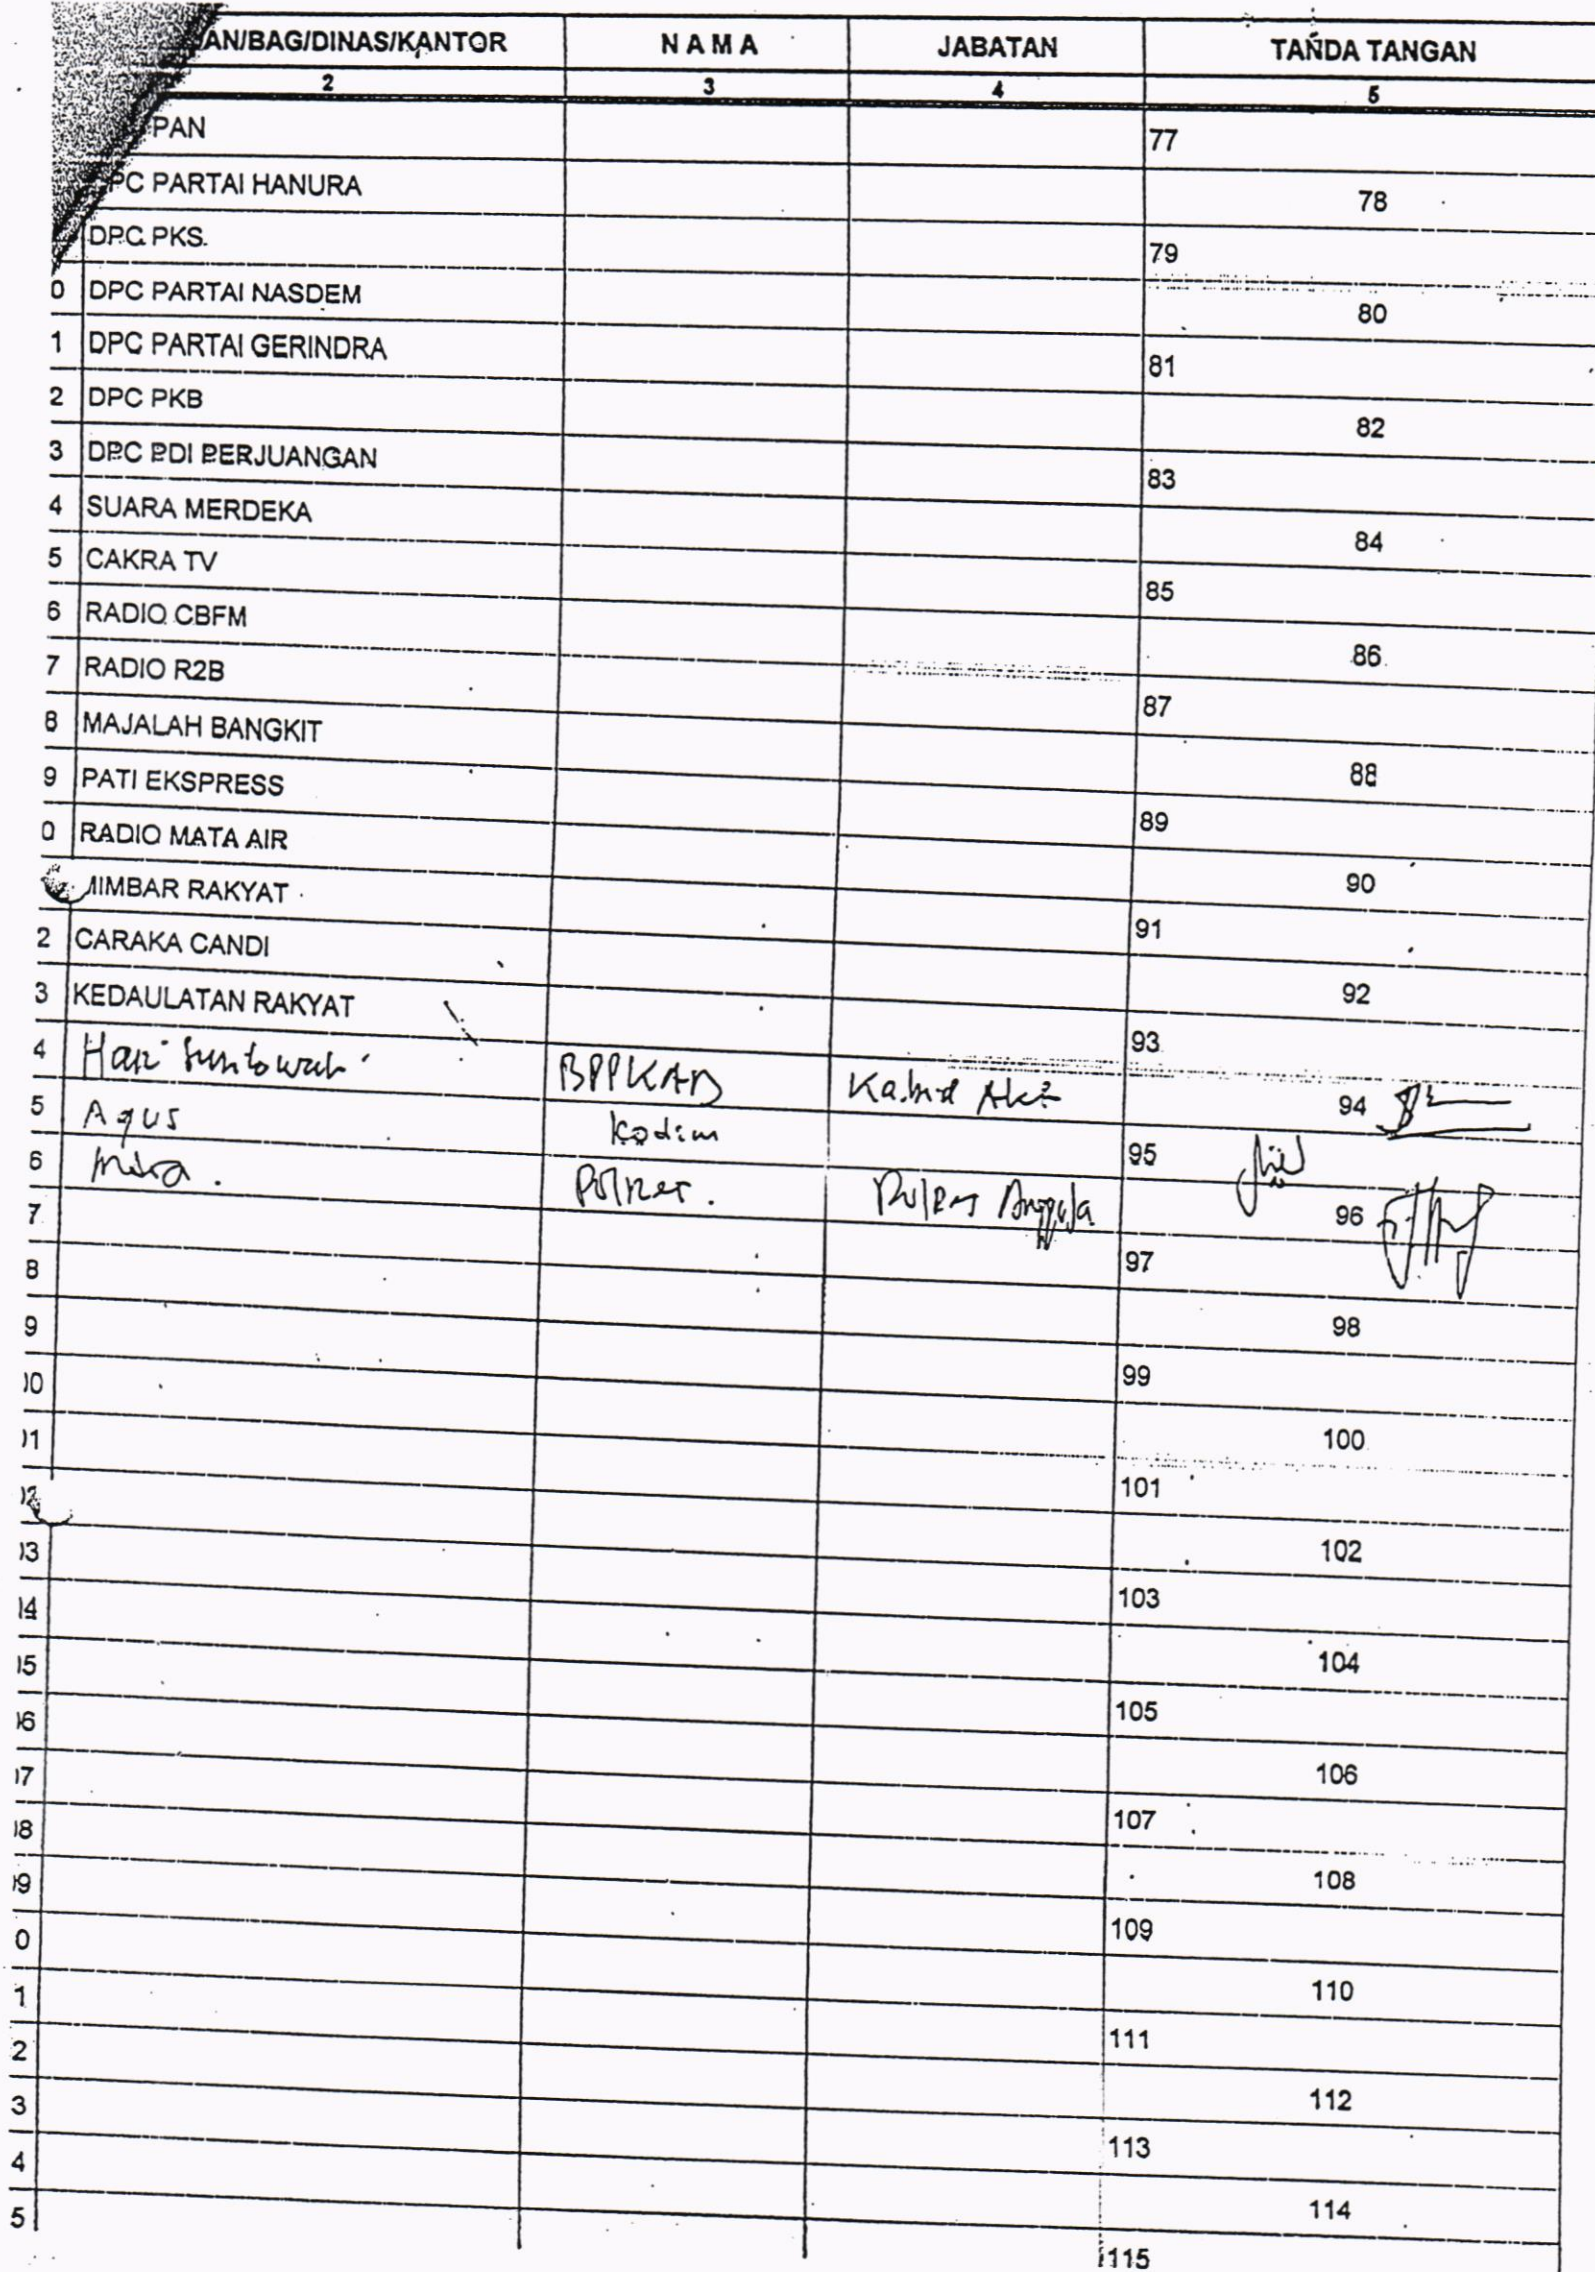 AN/BAG/DINAS/KANTOR NAMA JABATAN TANDA TANGAN
2 3 4 5
PAN 77
PC PARTAI HANURA 78
DPC PKS. 79
0 DPC PARTAI NASDEM 80
1 DPC PARTAI GERINDRA 81
2 DPC PKB 82
3 DPC PDI PERJUANGAN 83
4 SUARA MERDEKA 84
5 CAKRA TV 85
6 RADIO CBFM 86
7 RADIO R2B 87
8 MAJALAH BANGKIT 88
9 PATI EKSPRESS 89
0 RADIO MATA AIR 90
MIMBAR RAKYAT 91
2 CARAKA CANDI 92
3 KEDAULATAN RAKYAT 93
4 Hari BPPKAD Kabid 94
5 Agus Kodim 95
6 Polres. 96
7 97
8 98
9 99
00 100
01 101
02 102
03 103
04 104
05 105
06 106
07 107
08 108
09 109
0 110
1 111
2 112
3 113
4 114
5 115